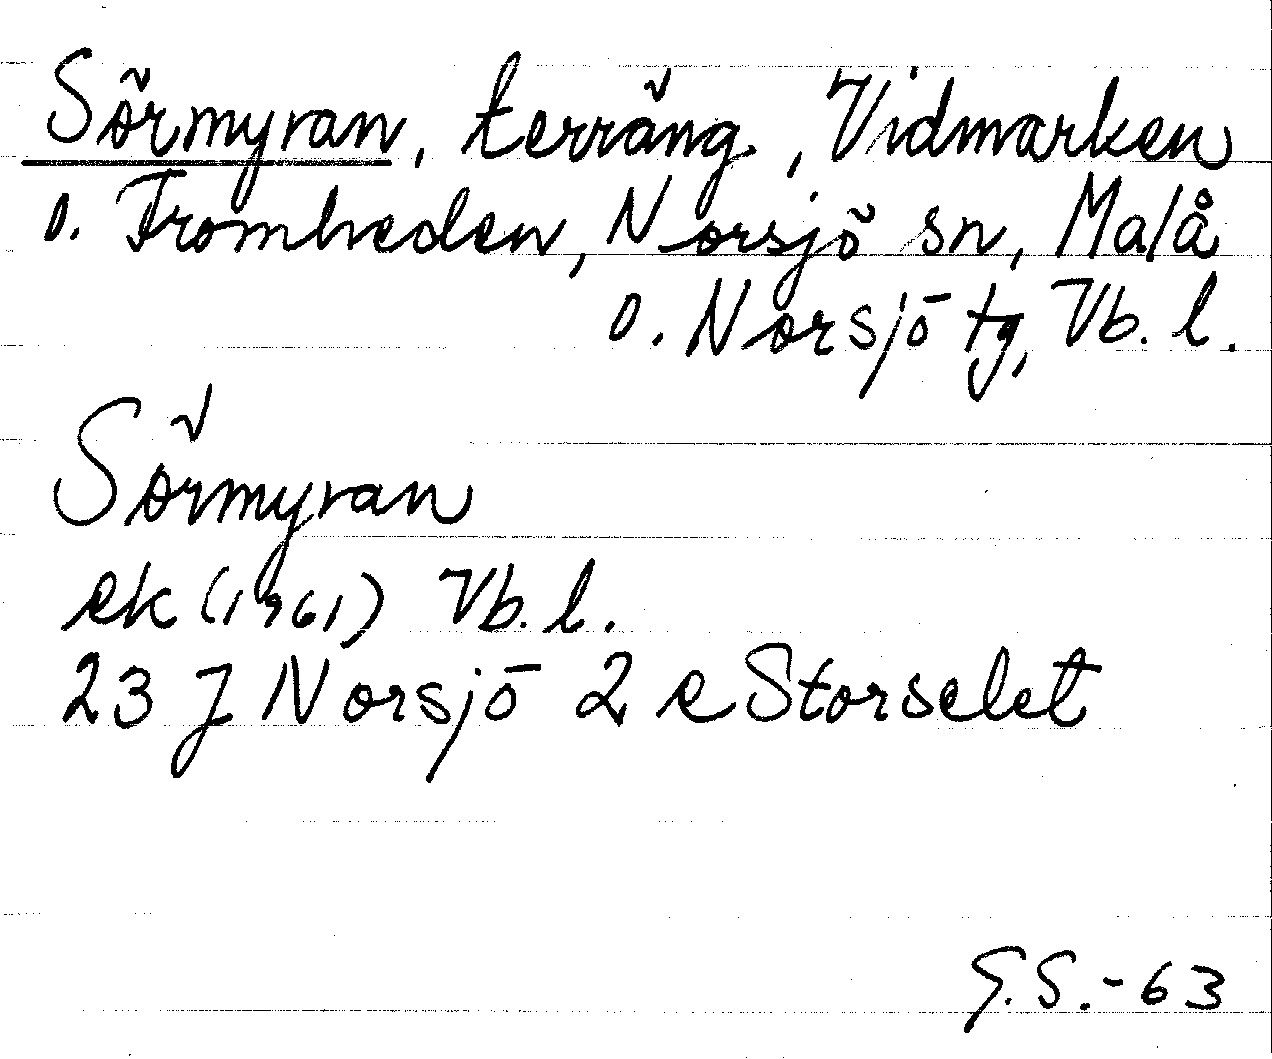 Sörmyran, terräng, Vidmarken
o. Fromheden, Norsjö sn, Malå
o. Norsjö tg, Vb. l.
Sörmyran
ek (1961) Vb. l.
23 J Norsjö 2 e Storselet
G.S.-63